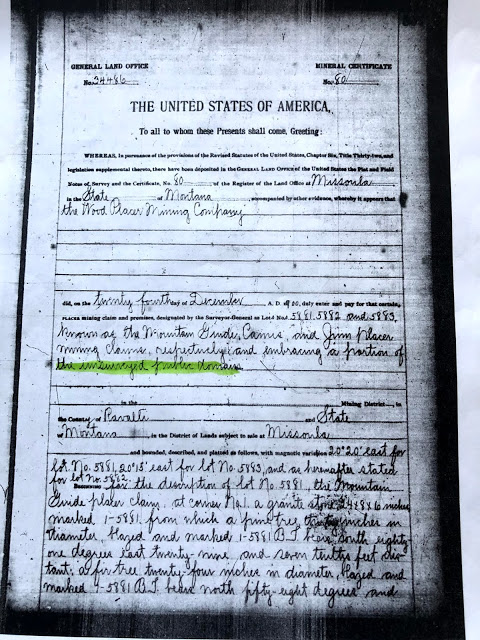 GENERAL LAND OFFICE
MINERAL CERTIFICATE
No. 34486
No. 80
THE UNITED STATES OF AMERICA,
To all to whom these Presents shall come, Greeting:
WHEREAS, In pursuance of the provisions of the Revised Statutes of the United States, Chapter Six, Title Thirty-two, and
legislation supplemental thereto, there have been deposited in the GENERAL LAND OFFICE of the United States the Plat and Field
Notes of Survey and the Certificate, No. 80 of the Register of the Land Office at Missoula
in the State of Montana, accompanied by other evidence, whereby it appears that
the Wood Placer Mining Company
did, on the twenty fourth day of December A. D. duly enter and pay for that certain
PLACER mining claim and premises, designated by the Surveyor-General as Lot No. 5881, 5882 and 5883,
known as the Mountain Guide, and Jim placer
mining claims, respectively, and embracing a portion of
the unsurveyed public domain
in the Mining District, in
the County of Ravalli and State
of Montana, in the District of Lands subject to sale at Missoula
and bounded, described, and platted as follows, with magnetic variation 20°20' east for
lot No. 5881, 20°15' east for lot No. 5883, and as hereafter stated
for lot No. 5882
BEGINNING for the description of lot No. 5881, the Mountain
Guide placer claim, at corner No. 1, a granite stone 24x8x6 inches
marked 1-5881, from which a pine tree inches in
diameter, blazed and marked 1-5881 B.T. bears south eighty-
one degrees east twenty-nine and seven tenths feet dis-
tant; a fir tree twenty-four inches in diameter, blazed and
marked 1-5881 B.T. bears north fifty-eight degrees and